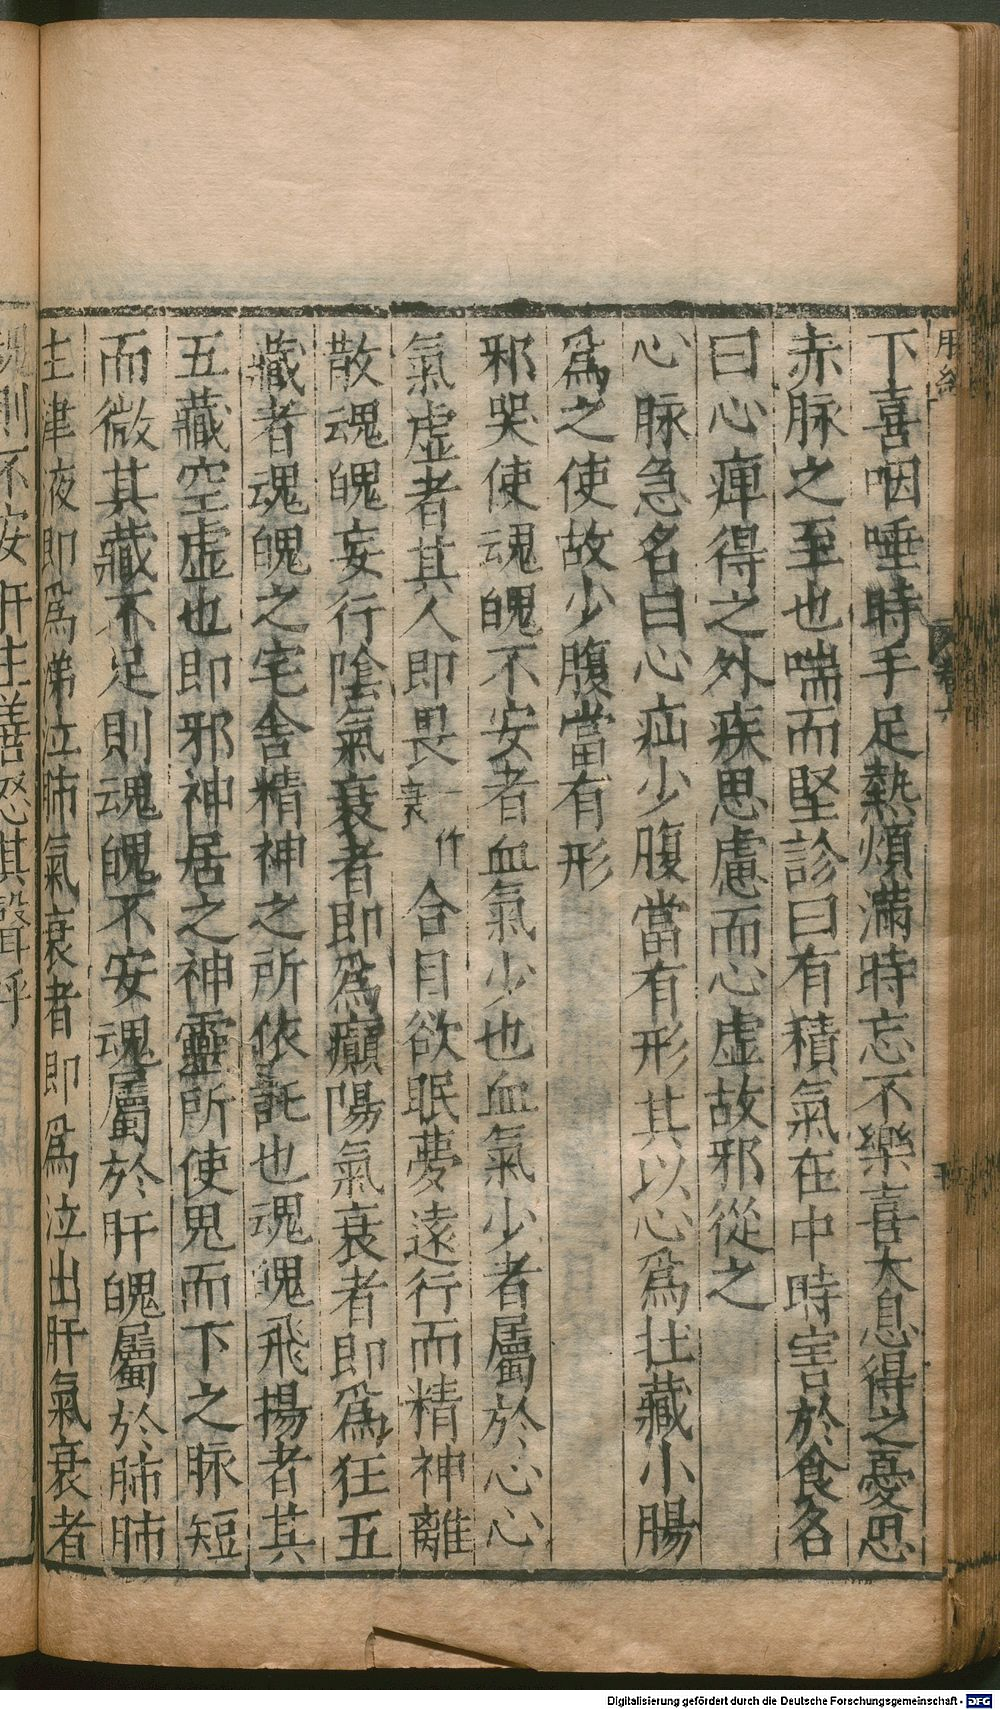 下喜咽唾時手足熱煩滿時忘不樂喜太息得之憂思
赤脉之至也喘而堅診曰有積氣在中時害於食名
曰心痺得之外疾思慮而心虛故邪從之
心脉急名曰心疝少腹當有形其以心爲壮藏小腸
爲之使故少腹當有形
邪哭使魂魄不安者血氣少也血氣少者屬於心心
氣虛者其人即畏一作衰合目欲眠夢遠行而精神離
散魂魄妄行陰氣衰者即爲癲陽氣衰者即爲狂五
藏者魂魄之宅舍精神之所依託也魂魄飛揚者其
五藏空虛也即邪神居之神靈所使鬼而下之脉短
而微其藏不足則魂魄不安魂屬於肝魄屬於肺肺
主津液即爲涕泣肺氣衰者即爲泣出肝氣衰者
魂則不安肝主善怒其聲呼
Digitalisierung gefördert durch die Deutsche Forschungsgemeinschaft - DFG